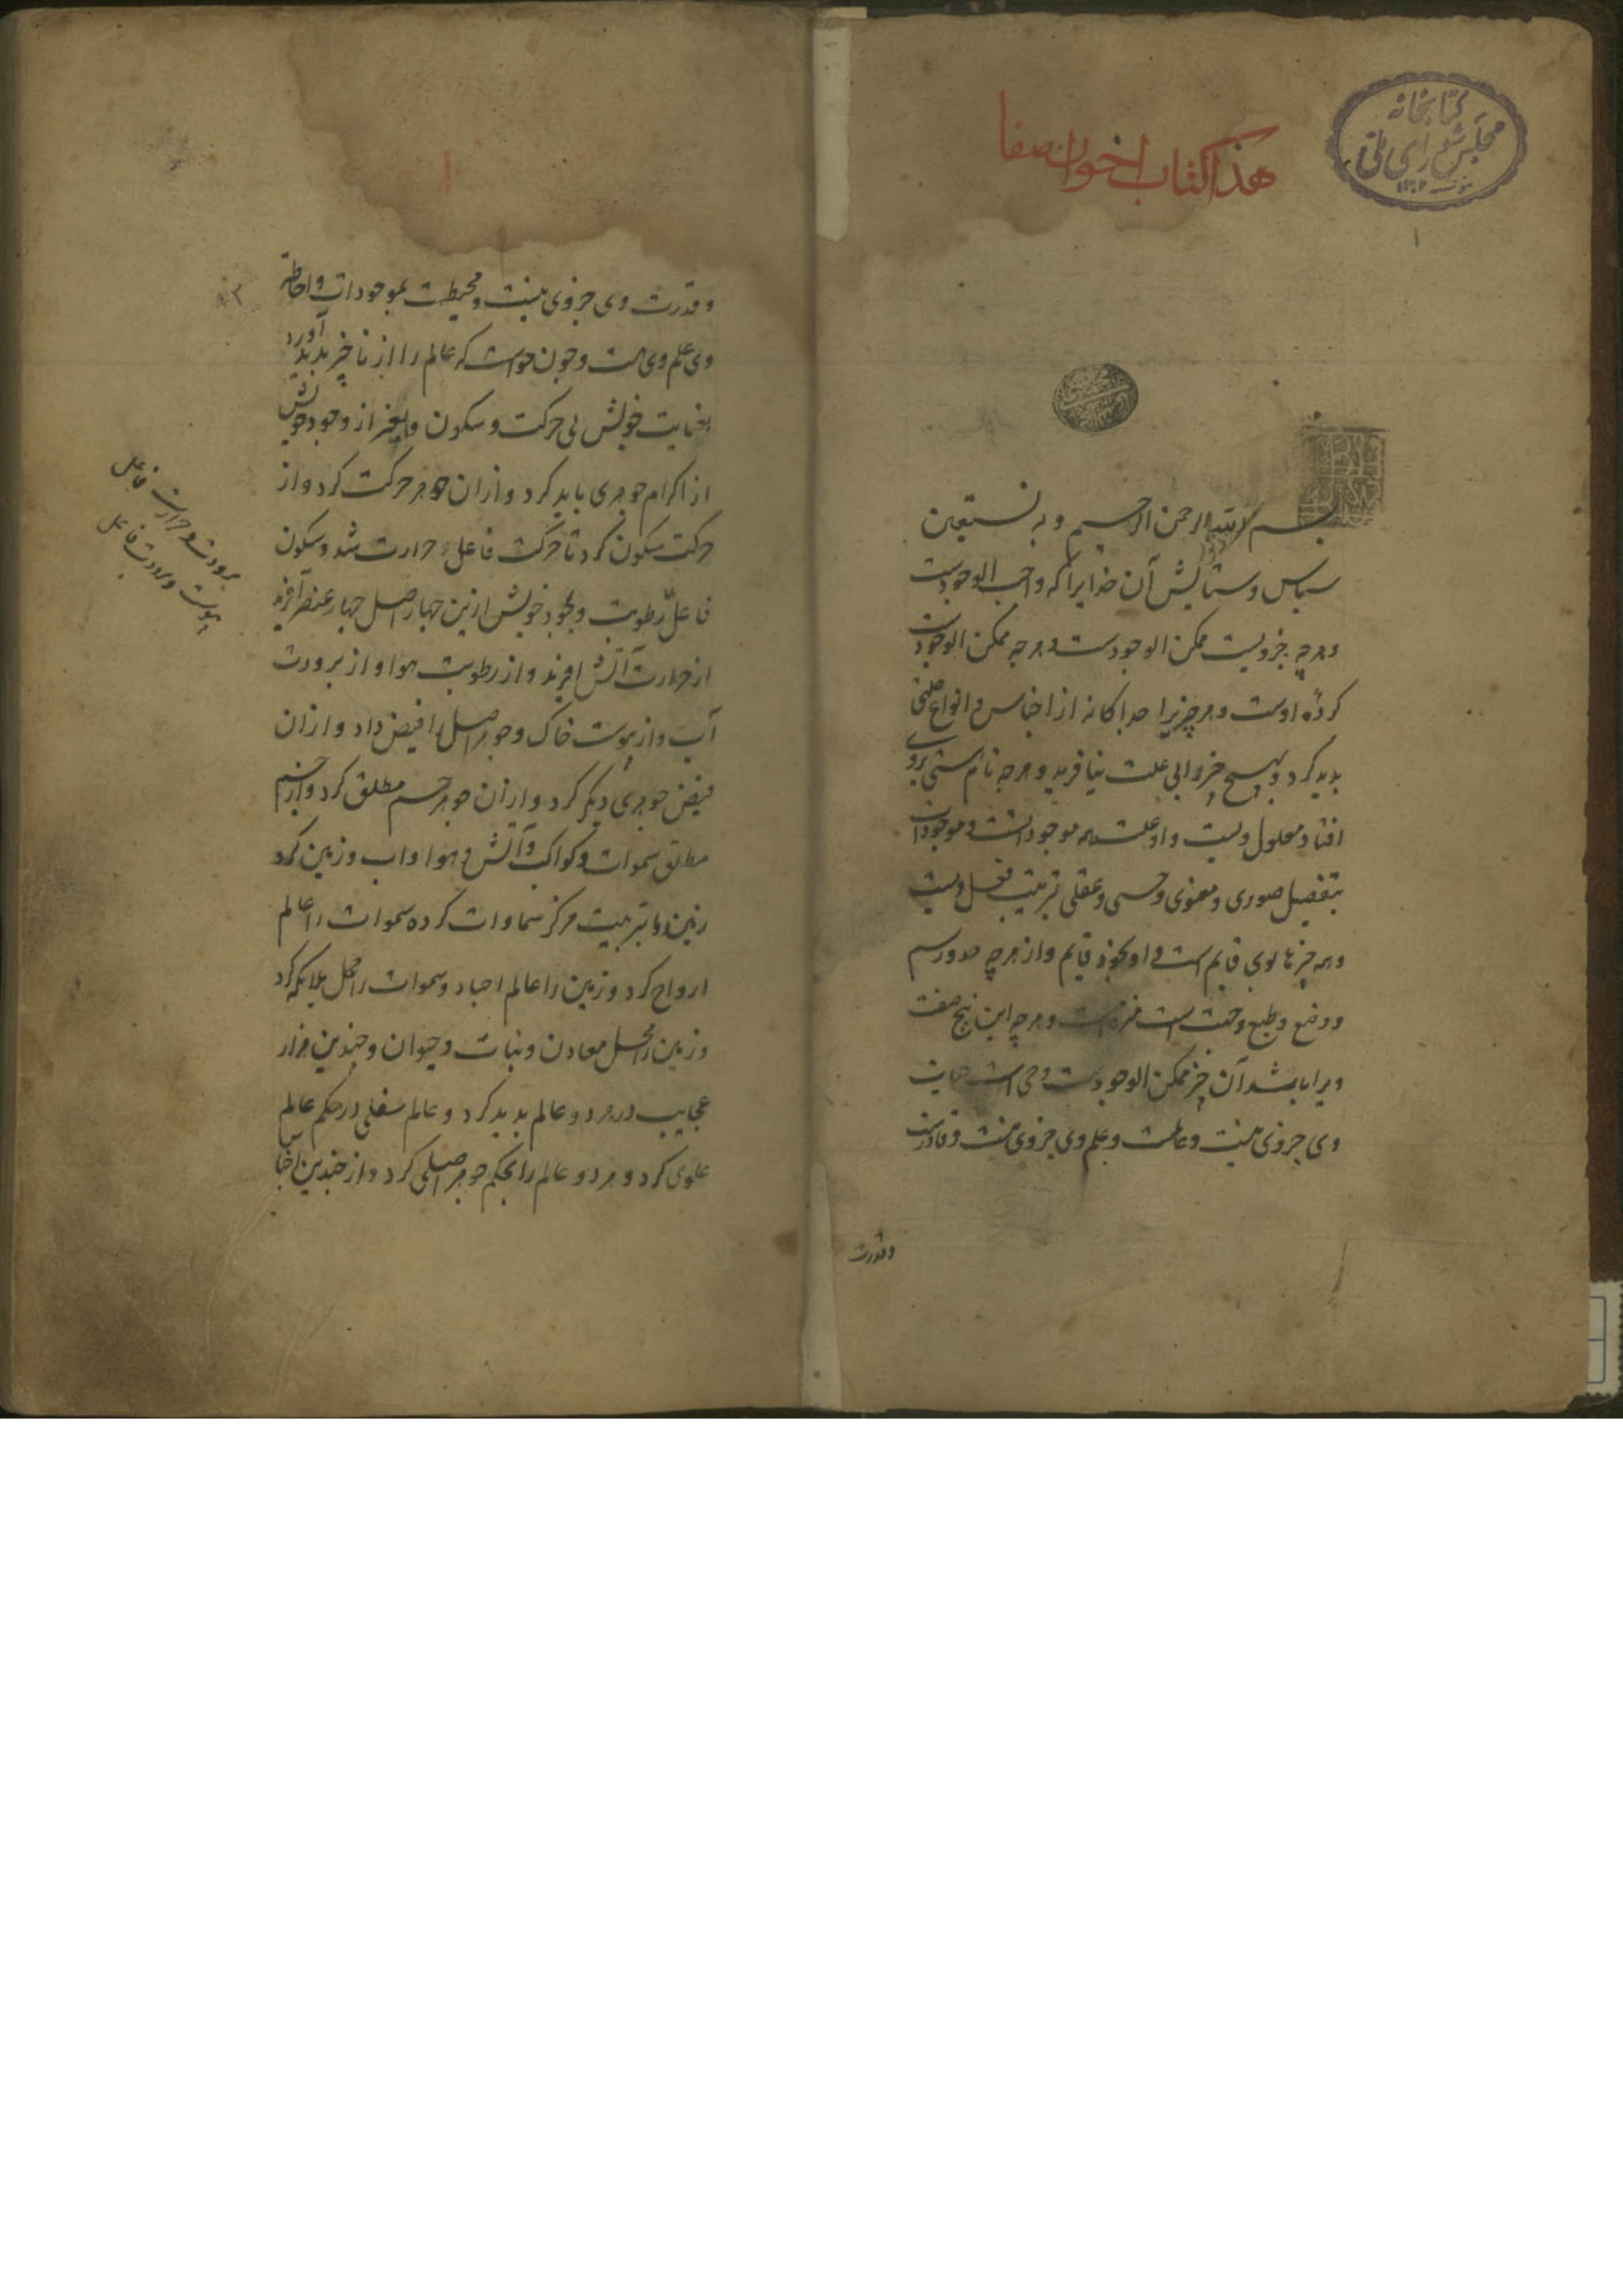 هذا کتاب اخوان صفا
کتابخانه
مجلس شورای ملی
۱
بسم الله الرحمن الرحیم و به نستعین
سپاس و ستایش آن خدایرا که واجب الوجودست
و هرچه جز ویست ممکن الوجودست و هرچه ممکن الوجودست
کردهٔ اوست و هر چیزیرا جداکانه از اجناس و انواع
بدید کرد و هیچ چیز را بی علت نیافرید و هرچه نام هستی بروی
افتاد معلول ویست و او علت همه موجوداتست و موجودات
بتفصیل صوری و معنوی و حسی و عقلی بترتیب فعل ویست
و همه چیزها بوی قایم است و او بخود قایم و از هرچه حد و رسم
و وضع و طبع و جنست است منزه است و هرچه این پنج صفت
ویرا باشد آن چیز ممکن الوجودست و حی است حیات
وی جز وی نیست و عالمست و علم وی جز وی نیست و قادرست
و قدرت
۲
و قدرت وی جز وی نیست و محیطست بموجودات و احاطت
وی علم وی است و چون خواست که عالم را از ناچیز بدید آورد
بعنایت خویش بی حرکت و سکون و تغیر از وجود خویش
از اکرام جوهری بدید کرد و ازان جوهر حرکت کرد و از
حرکت سکون کرد تا حرکت فاعل حرارت شد و سکون
فاعل رطوبت و بجود خویش ازین چهار اصل چهار عنصر آفرید
از حرارت آتش آفرید و از رطوبت هوا و از برودت
آب و از یبوست خاک و جوهر اصل را فیض داد و ازان
فیض جوهری دیکر کرد و ازان جوهر جسم مطلق کرد و از جسم
مطلق سموات و کواکب و آتش و هوا و اب و زمین کرد
زمین را بتربیت مرکز سماوات کرده سموات را عالم
ارواح کرد و زمین را عالم اجساد و سموات را محل ملایکه کرد
و زمین را محل معادن و نبات و حیوان و چندین هزار
عجایب در هر دو عالم بدید کرد و عالم سفلی در حکم عالم
علوی کرد و هر دو عالم را بحکم جوهر اصلی کرد و از چندین اجناس
برودت و حرارت فاعل
یبوست و برودت فاعل